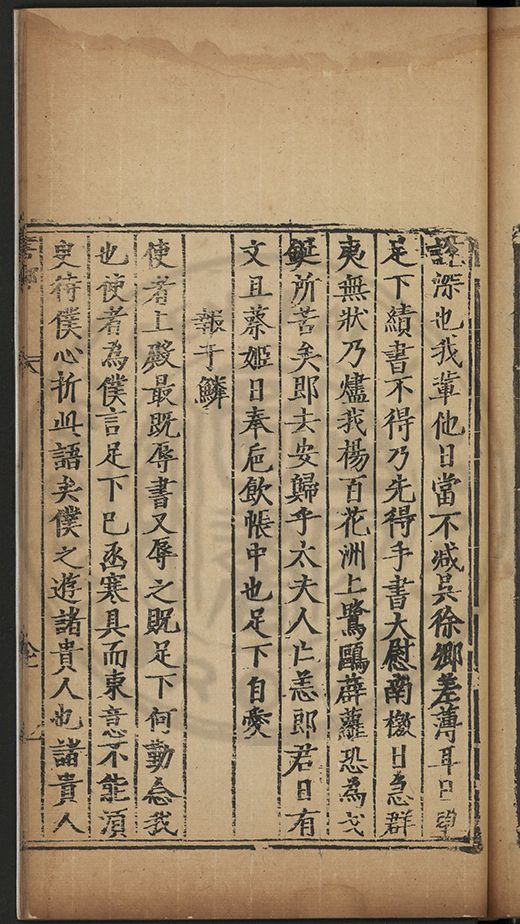 深也我輩他日當不减吳徐鄉差薄耳日望
足下續書不得乃先得手書大慰南檄日急群
夷無狀乃燼我楊百花洲上鷺鷗薜蘿恐為戈
鋋所苦矣郎去安歸乎太夫人亡恙郎君日有
文且蔡姬日奉巵飲帳中也足下自愛
報于鱗
使者上殿最既辱書又辱之貺足下何勤念我
也使者為僕言足下已亟寒具而東意不能須
臾待僕心折此語矣僕之遊諸貴人也諸貴人